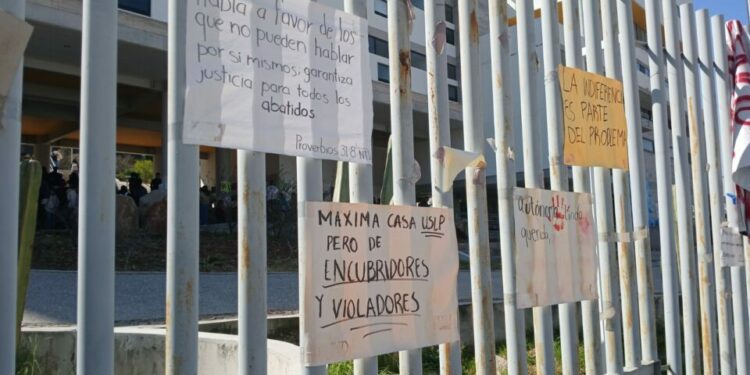 Habla a favor de los
que no pueden hablar
por si mismos; garantiza
justicia para todos los
abatidos
Proverbios 31:8 NTV
LA INDIFERENCIA
ES PARTE
DEL PROBLEMA
MAXIMA CASA USLP
PERO DE
ENCUBRIDORES
Y VIOLADORES
autónoma linda
querida,